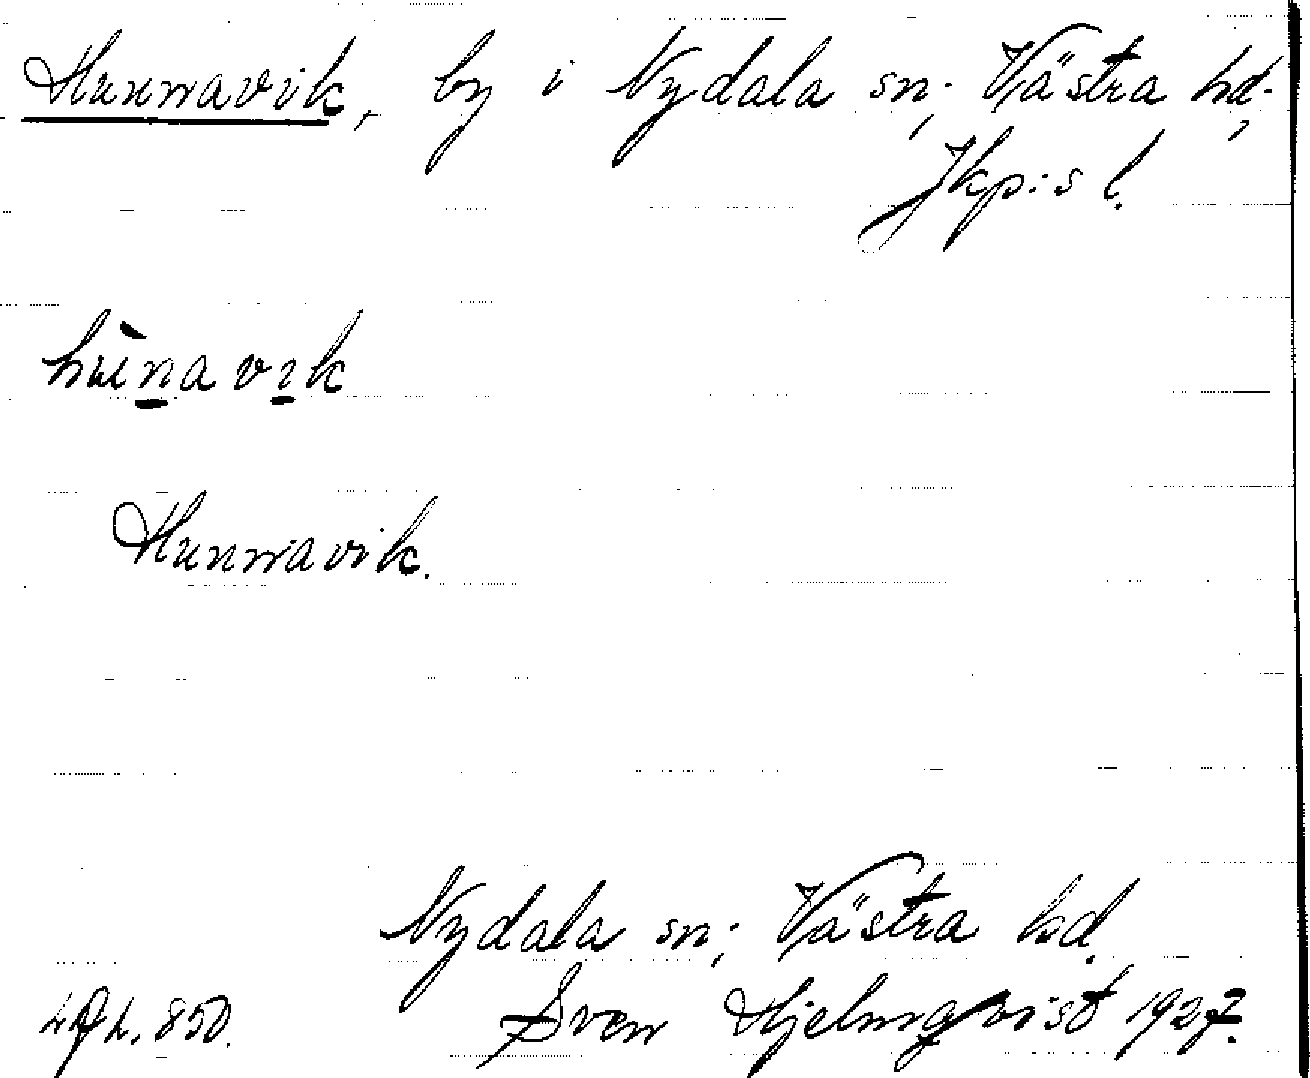 Hunnavik, by i Nydala sn; Västra hd,
Jkp:s l.
hùnavik
Hunnavik.
Nydala sn; Västra hd.
850. Sven Hjelmqvist 1927.